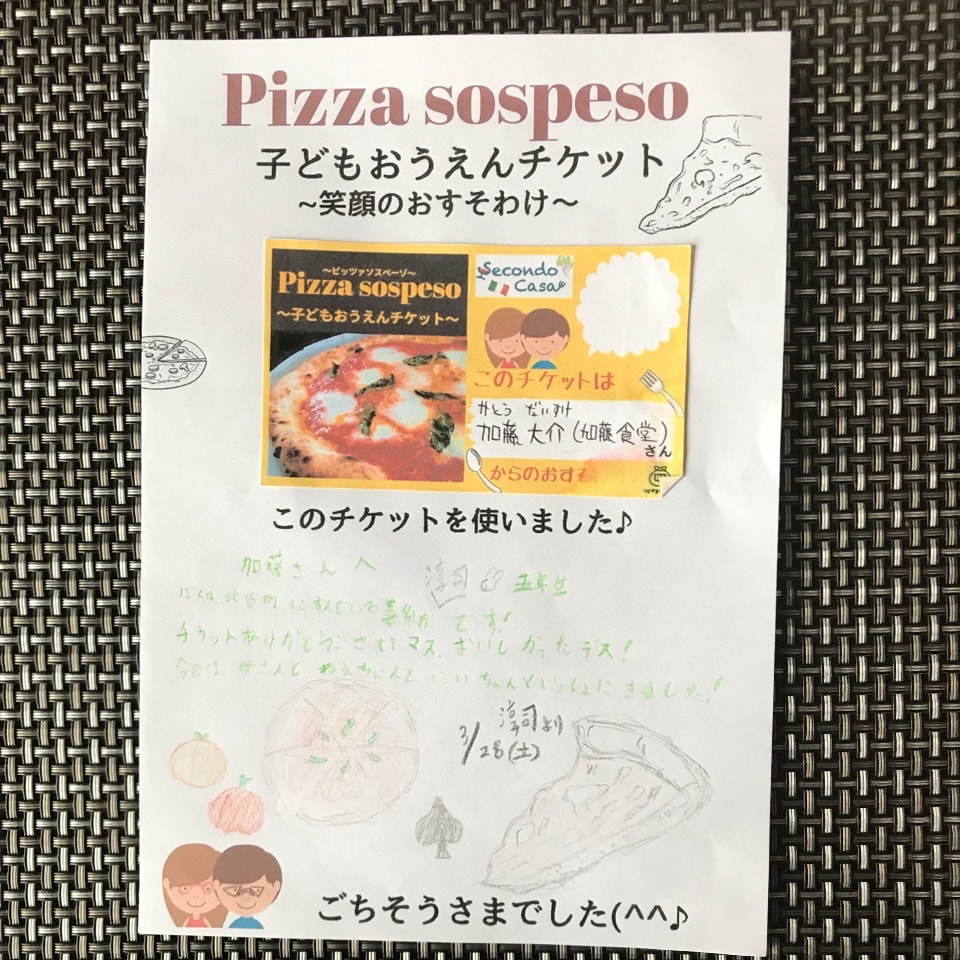 Pizza sospeso
子どもおうえんチケット
~笑顔のおすそわけ~
~ピッツァソスペーゾ~
Pizza sospeso
~子どもおうえんチケット~
Secondo
Casa
このチケットは
かとう だいすけ
加藤 大介 (加藤食堂)
さん
からのおすそ
このチケットを使いました♪
加藤さんへ 淳司 五年生
ぼくは、北谷町にすんでいる です!
チケットありがとうございマス、おいしかったデス!
今日は、母さんと、ねえちゃんと、にいちゃんといっしょにきました!
淳司より
3/28(土)
ごちそうさまでした(^^♪